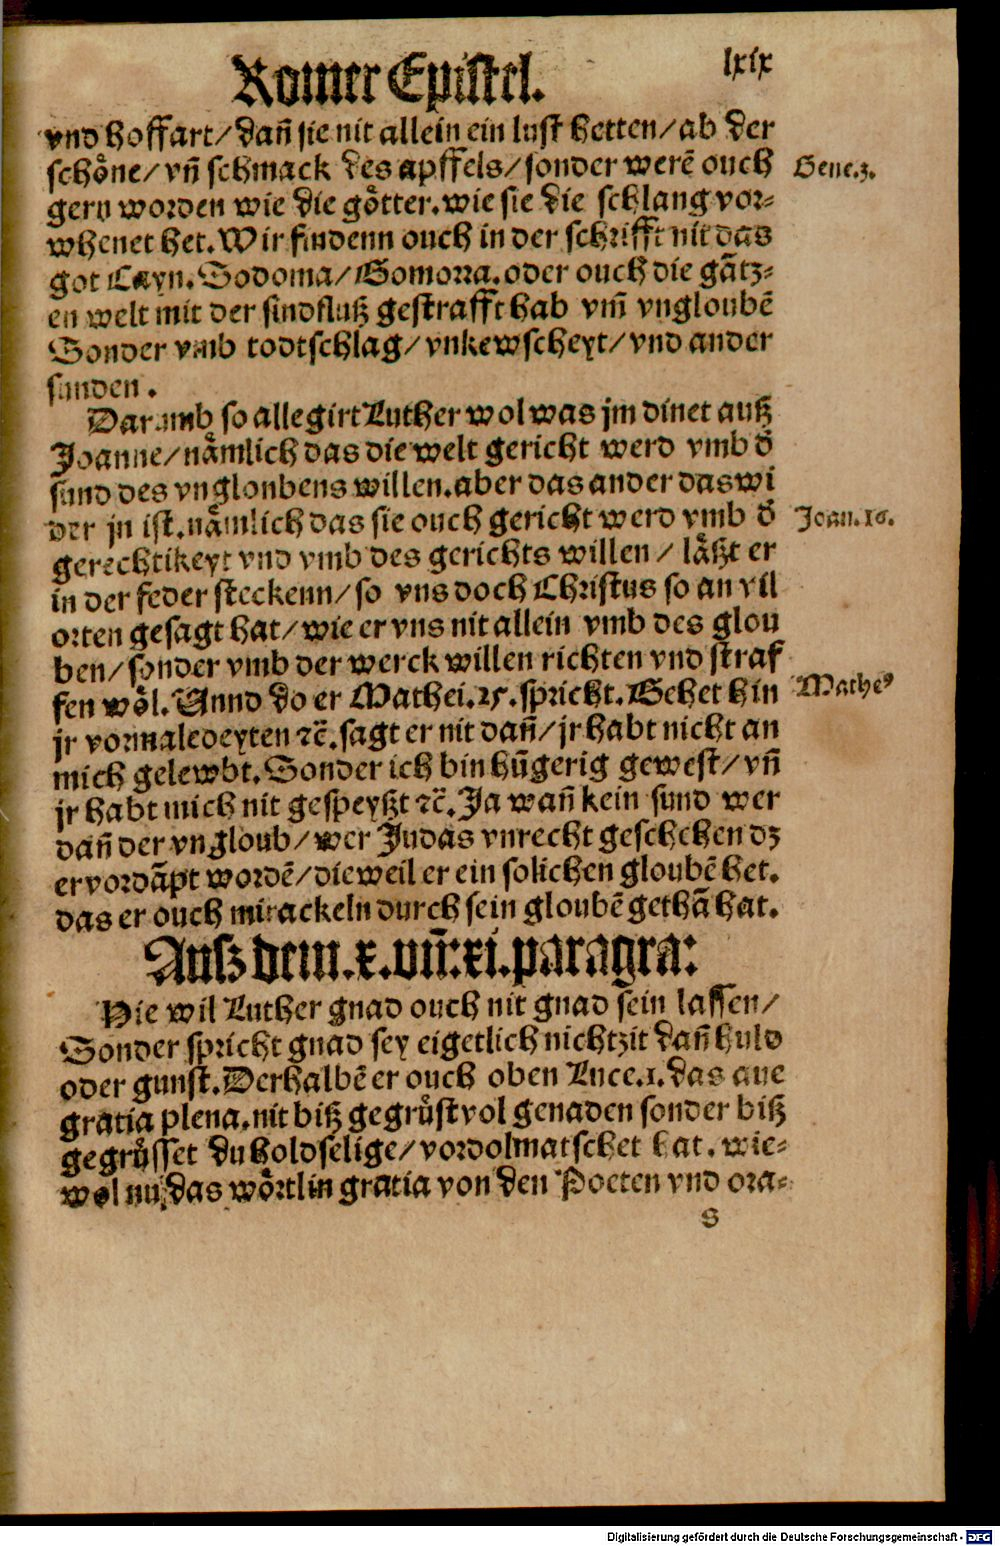 Romer Epistel.
lxix
vnd hoffart/ dañ sie nit allein ein lust hetten/ ab der
schoͤne/ vñ schmack des apffels/ sonder werē ouch
Gene.3.
gern worden wie die goͤtter. wie sie die schlang vor⸗
whenet het. Wir findenn ouch in der schrifft nit das
got Cayn. Sodoma/ Gomorra. oder ouch die gātz⸗
en welt mit der sindfluß gestrafft hab vm̄ vngloubē
Sonder vmb todtschlag/ vnkewscheyt/ vnd ander
sunden.
Darumb so allegirt Luther wol was jm dinet auß
Joanne/ naͤmlich das die welt gericht werd vmb d̄
sund des vngloubens willen. aber das ander das wi
der jn ist. naͤmlich das sie ouch gericht werd vmb d̄
Joan. 16.
gerechtikeyt vnd vmb des gerichts willen/ laͤßt er
in der feder steckenn/ so vns doch Christus so an vil
orten gesagt hat/ wie er vns nit allein vmb des glou
ben/ sonder vmb der werck willen richten vnd straf
fen woͤl. Annd do er Mathei. 25. spricht. Gehet hin
Mathe⁹
jr vormaledeyten ꝛc̄. sagt er nit dañ/ jr habt nicht an
mich gelewbt. Sonder ich bin hūgerig gewest/ vñ
jr habt mich nit gespeyßt ꝛc̄. Ja wañ kein sund wer
dañ der vngloub/ wer Judas vnrecht geschehen dz
er vordāpt wordē/ dieweil er ein solichen gloubē het.
das er ouch mirackeln durch sein gloubē gethā hat.
Ausz dem. x. vñ. xi. paragra:
Hie wil Luther gnad ouch nit gnad sein lassen/
Sonder spricht gnad sey eigetlich nichtzit dañ huld
oder gunst. Derhalbē er ouch oben Luce. 1. das aue
gratia plena. nit biß gegruͤst vol genaden sonder biß
gegruͤsset du holdselige/ vordolmatschet hat. wie⸗
wol nu das woͤrtlin gratia von den Poeten vnd ora⸗
S
Digitalisierung gefördert durch die Deutsche Forschungsgemeinschaft - DFG